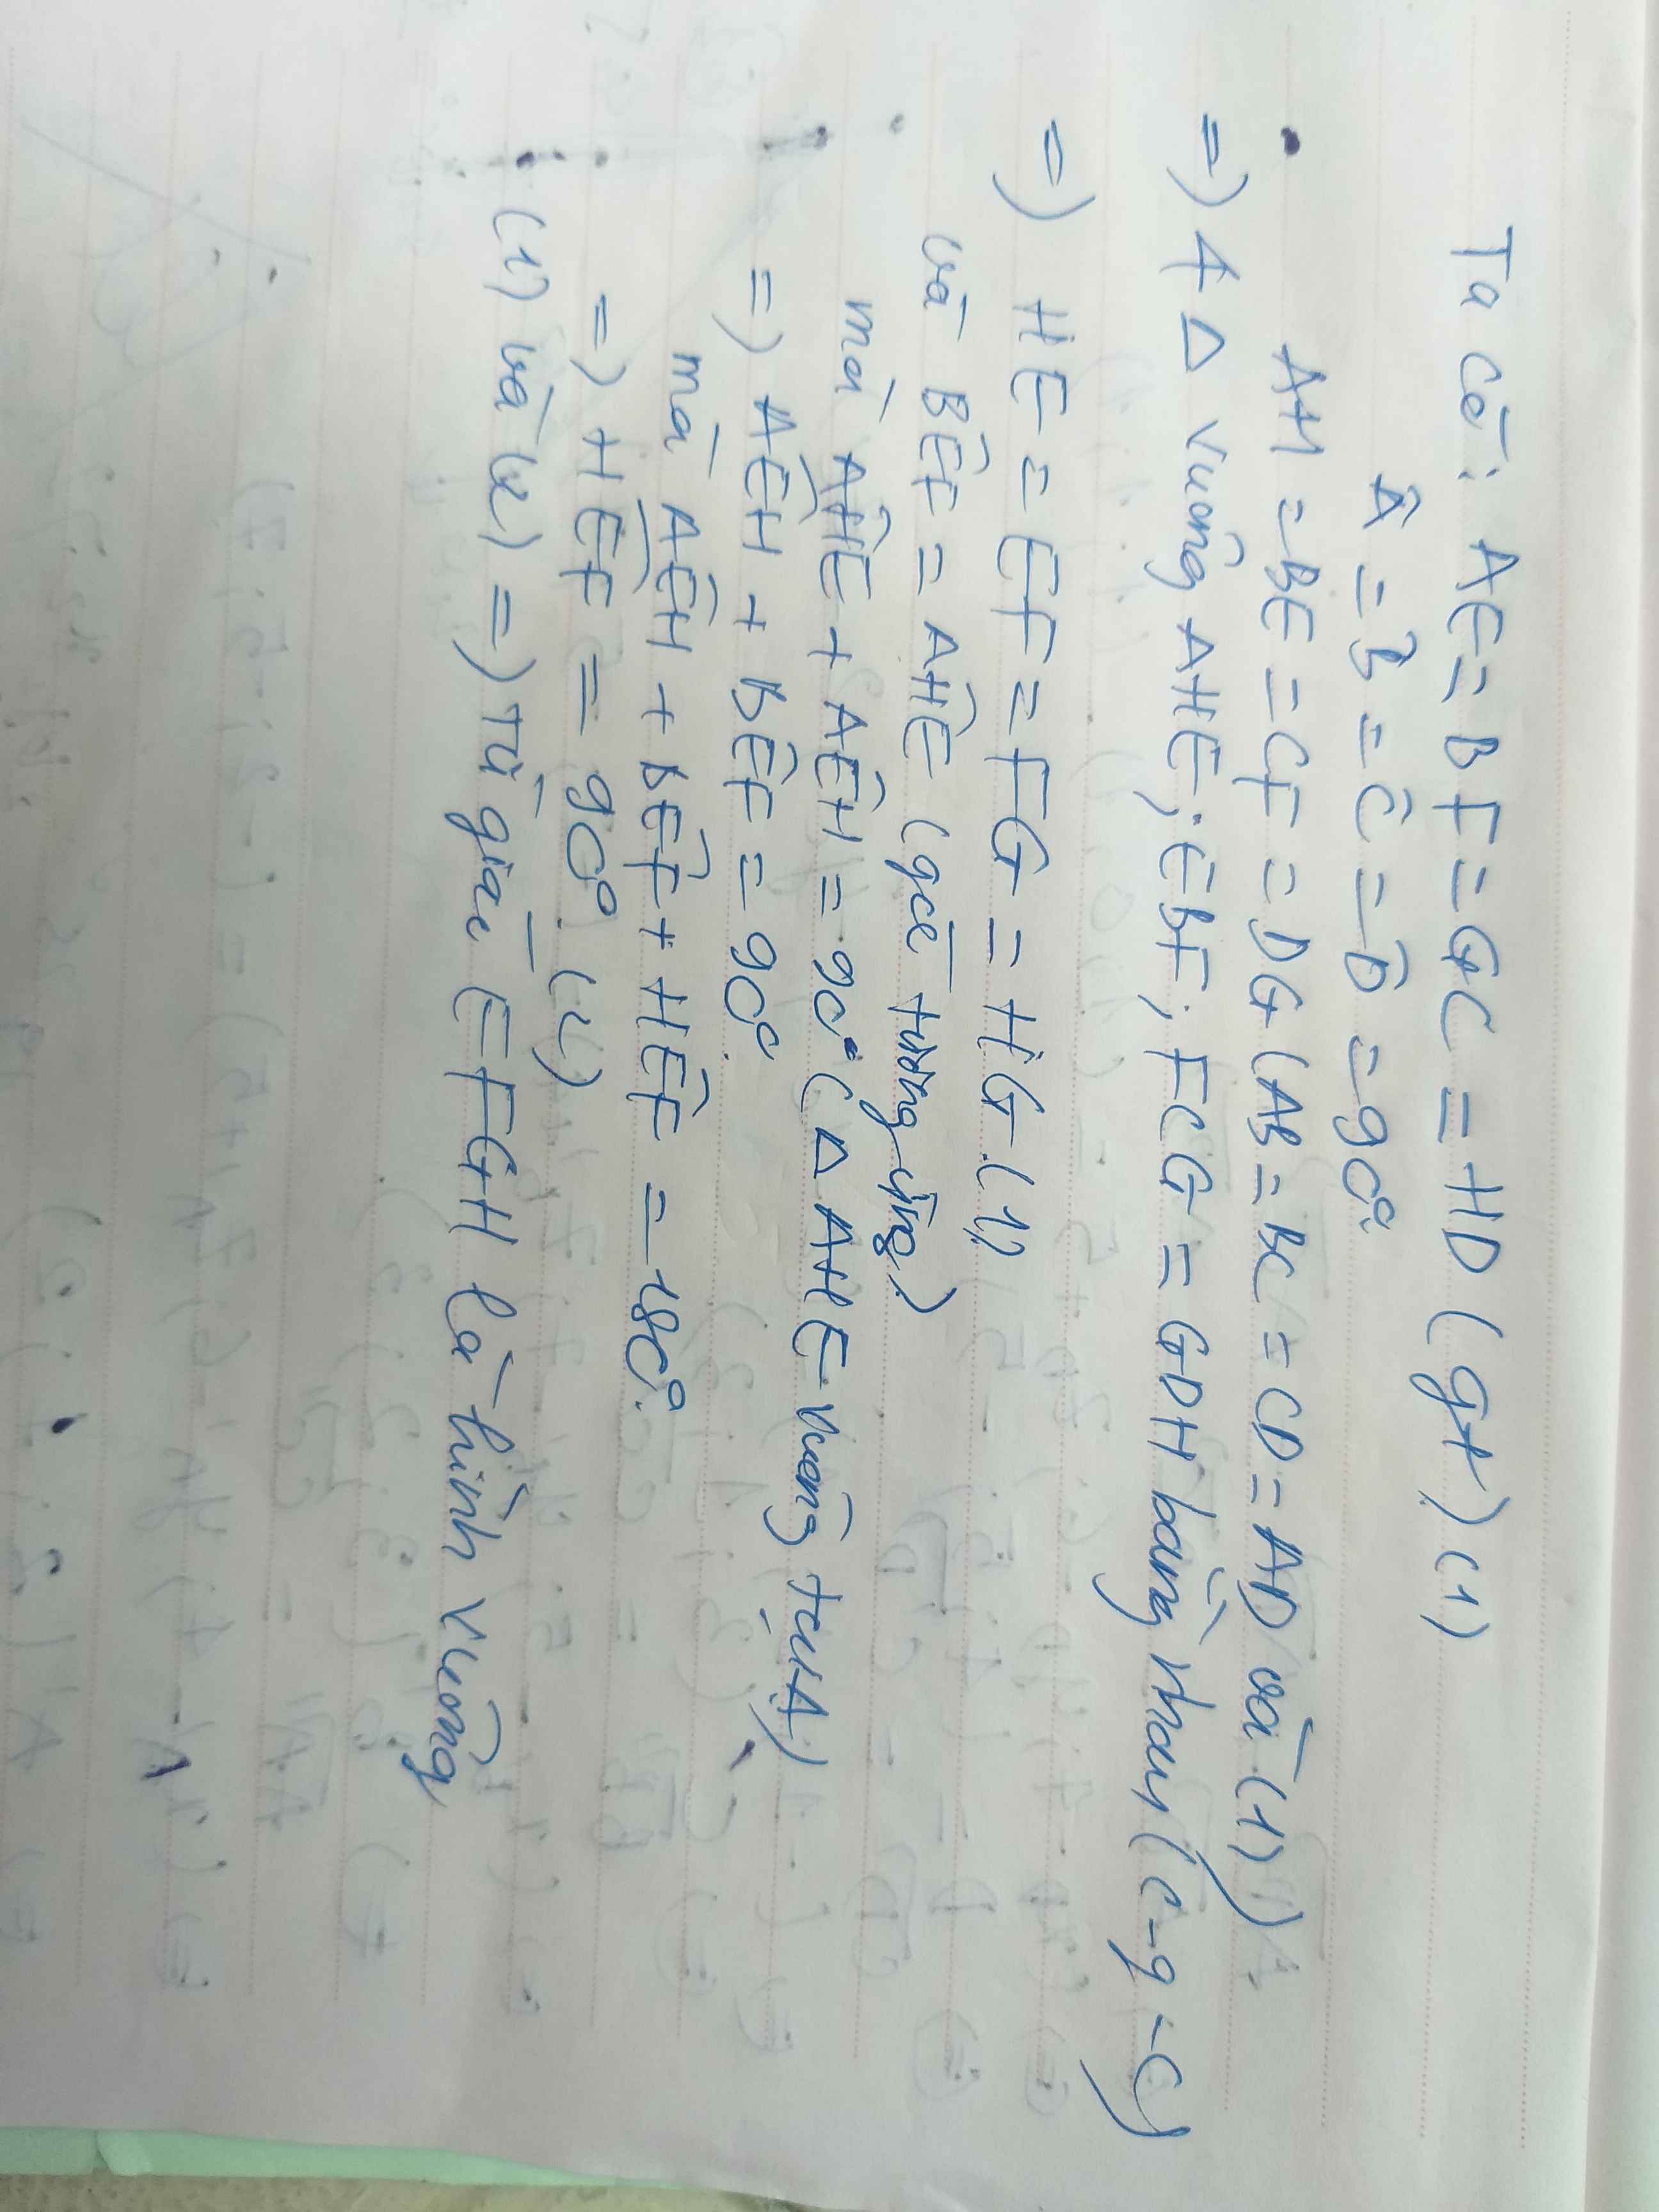 Ta có: AE = BF = GC = HD (gt) (1)
Â = B̂ = Ĉ = D̂ = 90°.
AH = BE = CF = DG (AB = BC = CD = AD và (1))
=) 4 Δ vuông AHE; EBF; FCG = GDH bằng nhau (c-g-c)
=) HE = EF = FG = HG (1)
và BÊF = AĤE (góc tương ứng)
mà AĤE + AÊH = 90° (Δ AHE vuông tại A)
=) AÊH + BÊF = 90°.
mà AÊH + BÊF + HÊF = 180°.
=) HÊF = 90°. (2)
(1) và (2) =) Tứ giác EFGH là hình vuông